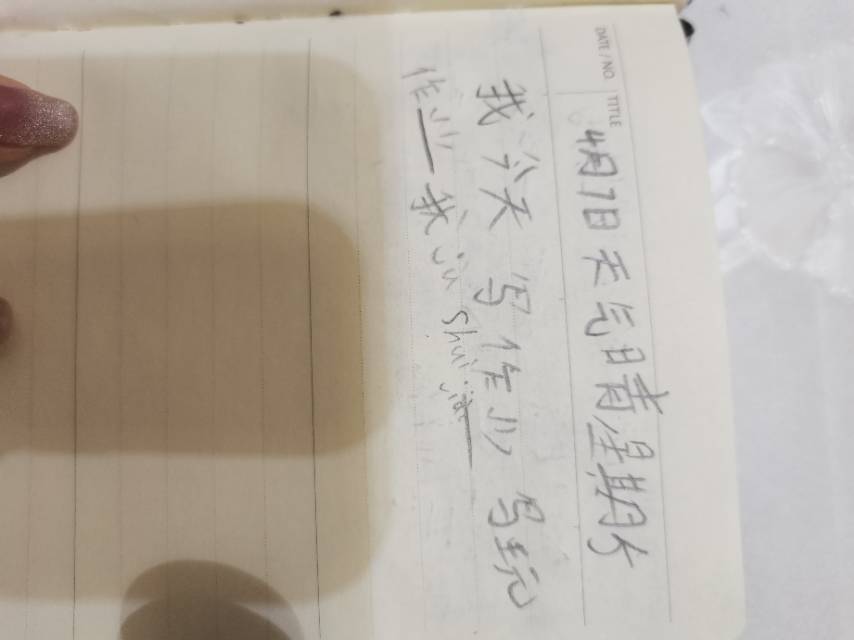 DATE / NO.
TITLE
4月7日天气晴星期六
我今天写作业写玩
作业我jiu shui jiao